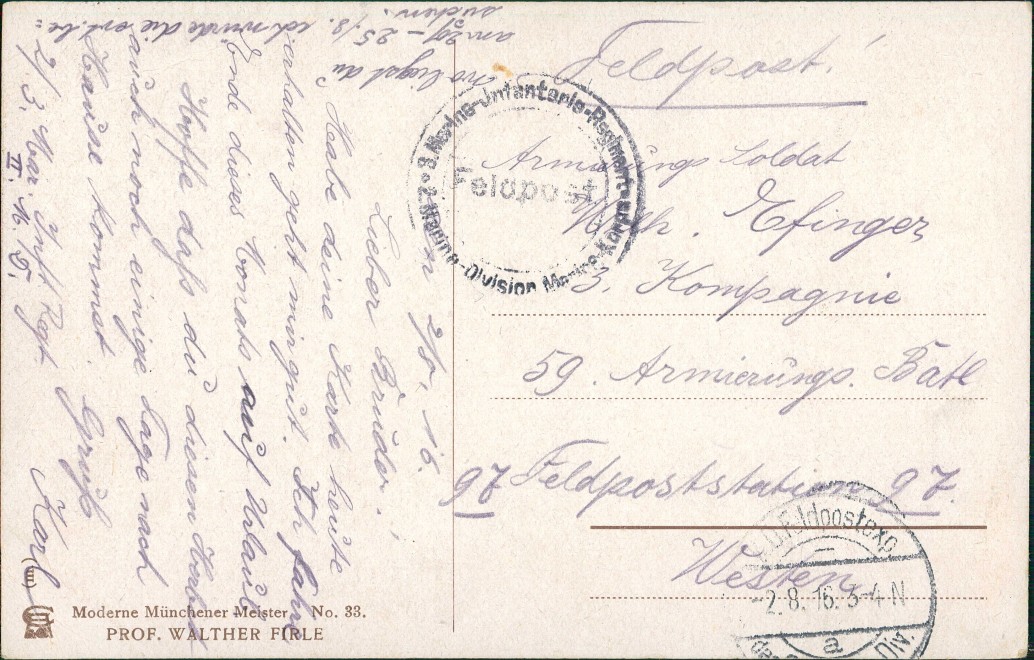 Feldpost!
Armierungs Soldat
Wilh. Efinger
3. Kompagnie
59. Armierungs. Batl
97 Feldpoststation 97.
Westen
3. Marine-Infanterie-Regiment
2. Marine-Division Marine-Korps
Feldpost
Feldpostexp
2.8.16.3-4N
a
Div.
den 2/8, 16.
Lieber Bruder!
Habe deine Karte heute
erhalten geht mir gut. Ich fahre
Ende dieses Monats auf Urlaub
Hoffe dass du diesen Herbst
auch noch einige Tage nach
Hause kommst. Gruß
Karl
2/3. Mar. Inft Regt.
II. M. D.
wo liegst du
am 20 – 25/8. ich würde die
suchen.
Moderne Münchener Meister No. 33.
PROF. WALTHER FIRLE